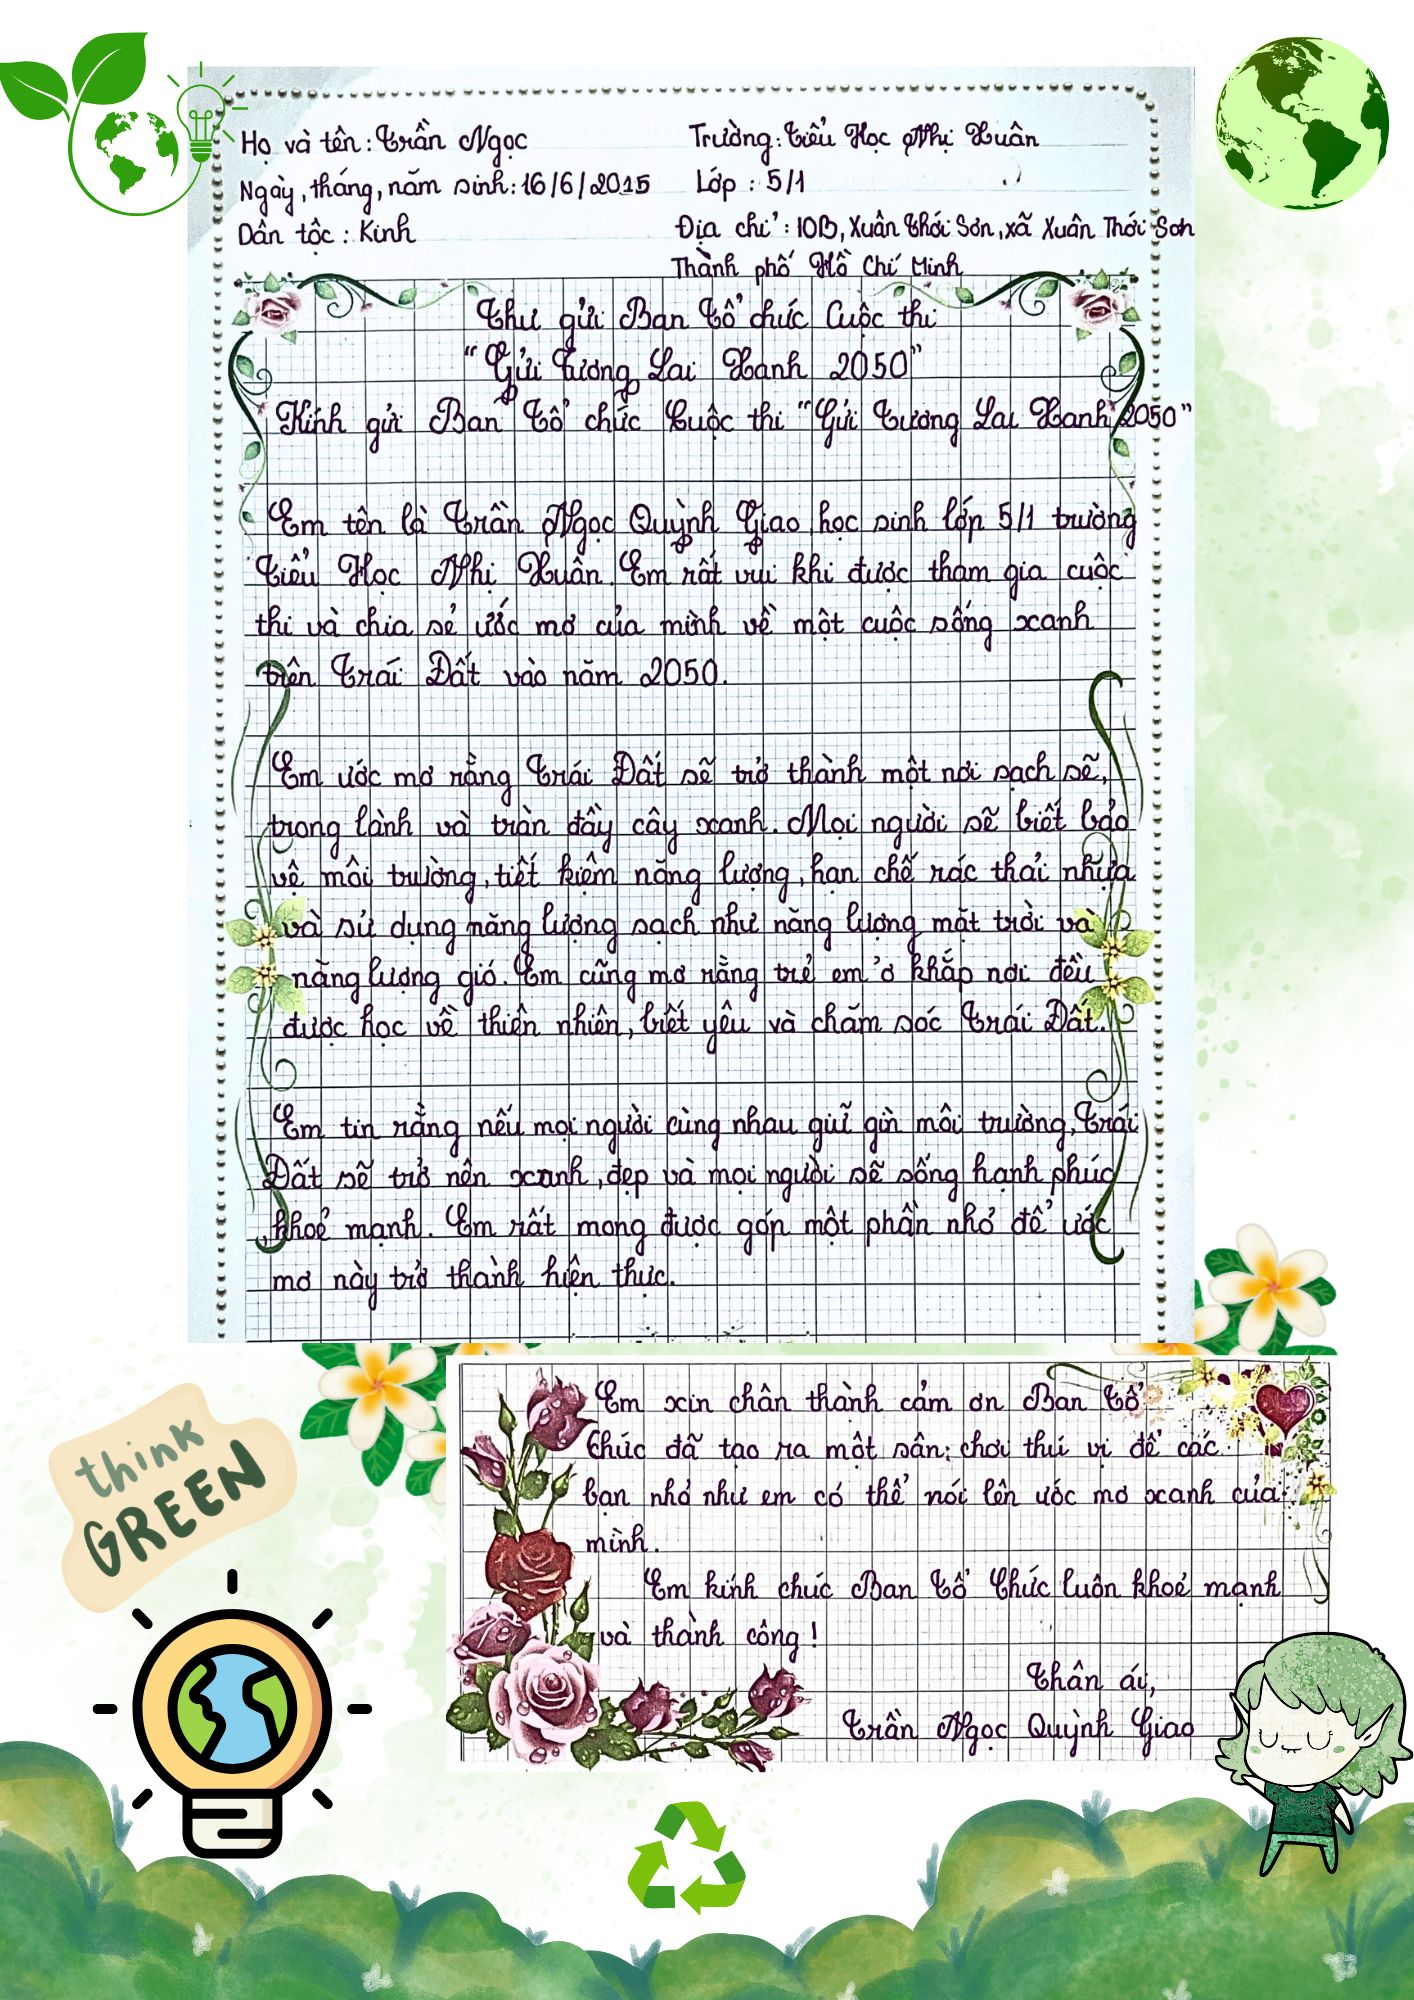 Họ và tên: Trần Ngọc
Trường: Tiểu Học Nhị Xuân
Ngày, tháng, năm sinh: 16/6/2015
Lớp: 5/1
Dân tộc: Kinh
Địa chỉ: 10B, Xuân Thới Sơn, xã Xuân Thới Sơn
Thành phố Hồ Chí Minh
Thư gửi Ban Tổ chức Cuộc thi
"Gửi Tương Lai Xanh 2050"
Kính gửi Ban Tổ chức Cuộc thi "Gửi Tương Lai Xanh 2050"
Em tên là Trần Ngọc Quỳnh Giao, học sinh lớp 5/1 trường
Tiểu Học Nhị Xuân. Em rất vui khi được tham gia cuộc
thi và chia sẻ ước mơ của mình về một cuộc sống xanh
trên Trái Đất vào năm 2050.
Em ước mơ rằng Trái Đất sẽ trở thành một nơi sạch sẽ,
trong lành và tràn đầy cây xanh. Mọi người sẽ biết bảo
vệ môi trường, tiết kiệm năng lượng, hạn chế rác thải nhựa
và sử dụng năng lượng sạch như năng lượng mặt trời và
năng lượng gió. Em cũng mơ rằng trẻ em ở khắp nơi đều
được học về thiên nhiên, biết yêu và chăm sóc Trái Đất.
Em tin rằng nếu mọi người cùng nhau giữ gìn môi trường, Trái
Đất sẽ trở nên xanh, đẹp và mọi người sẽ sống hạnh phúc
, khoẻ mạnh. Em rất mong được góp một phần nhỏ để ước
mơ này trở thành hiện thực.
Em xin chân thành cảm ơn Ban Tổ
Chức đã tạo ra một sân chơi thú vị để các
bạn nhỏ như em có thể nói lên ước mơ xanh của
mình.
Em kính chúc Ban Tổ Chức luôn khoẻ mạnh
và thành công!
Thân ái,
Trần Ngọc Quỳnh Giao
think
GREEN